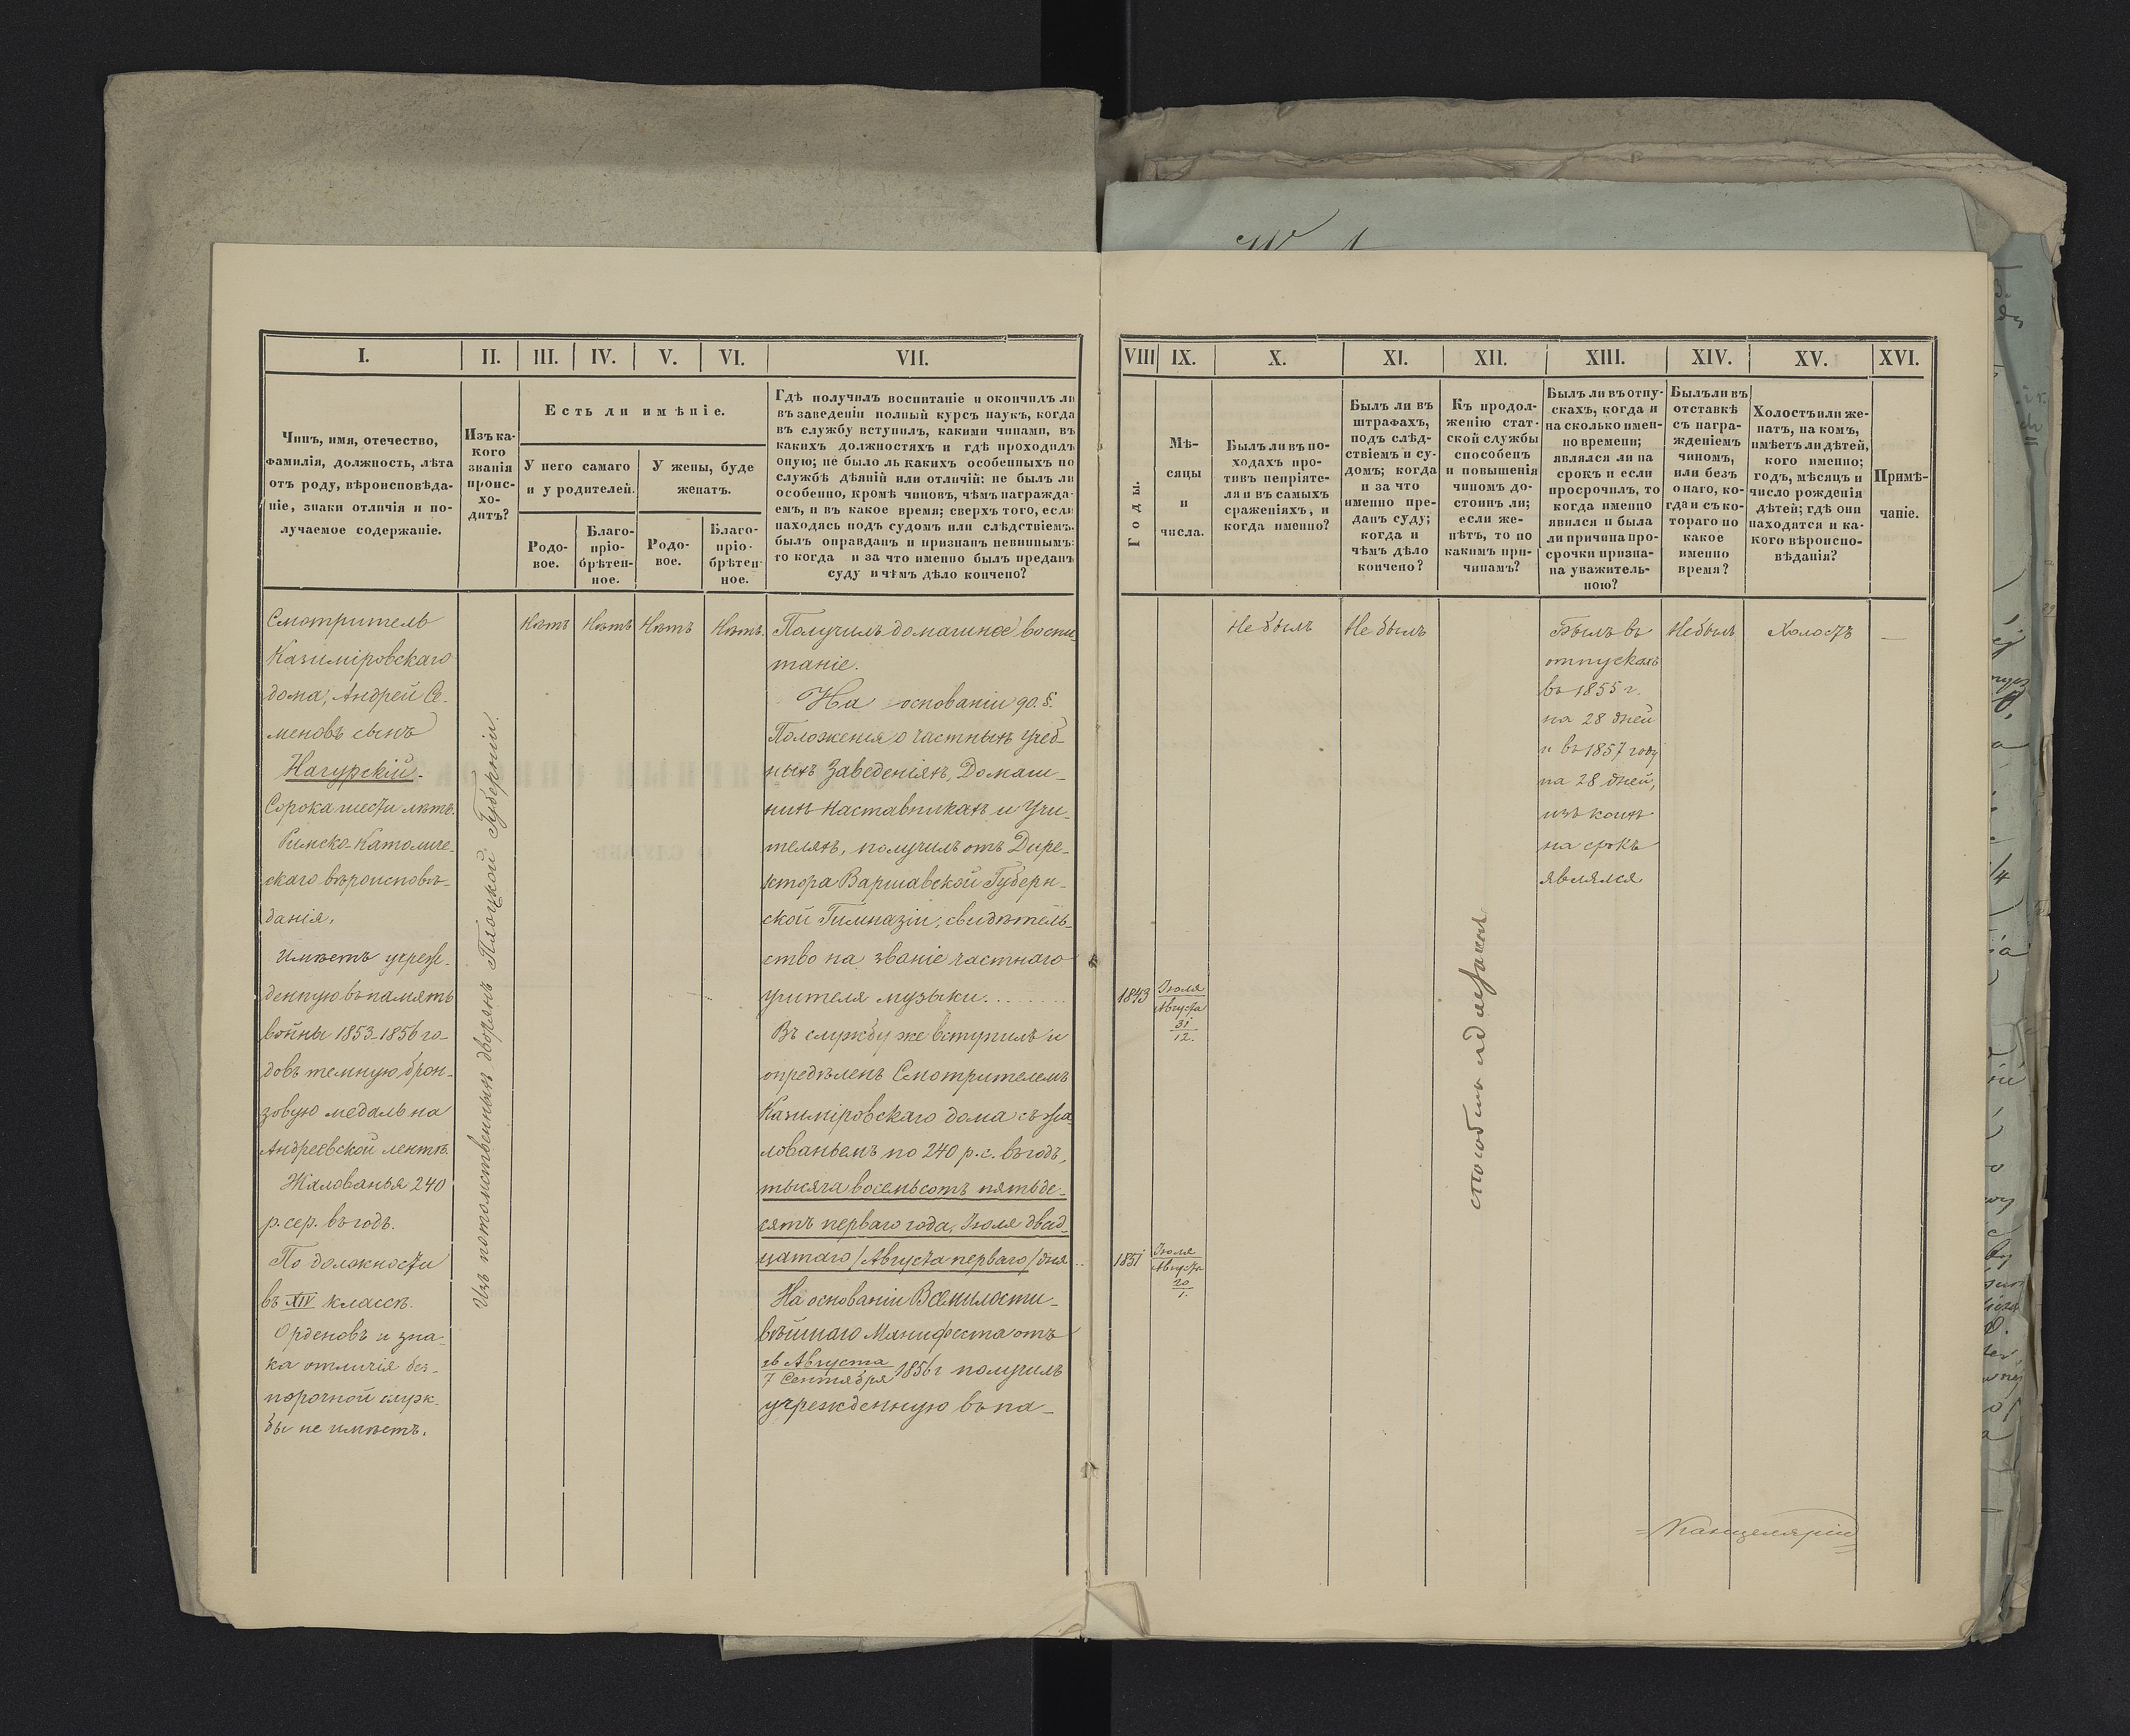 I. II. III. IV. V. VI. VII.
Чинъ, имя, отечество,
фамилія, должность, лѣта
отъ роду, вѣроисповѣда-
ніе, знаки отличія и по-
лучаемое содержаніе.
Изъ ка-
кого
званія
проис-
хо-
дитъ?
Есть ли имѣніе.
У него самаго
и у родителей.
У жены, буде
женатъ.
Родо-
вое.
Благо-
прiо-
брѣтен-
ное.
Родо-
вое.
Благо-
прiо-
брѣтен-
ное.
Гдѣ получилъ воспитаніе и окончилъ ли
въ заведеніи полный курсъ наукъ, когда
въ службу вступилъ, какими чинами, въ
какихъ должностяхъ и гдѣ проходилъ
оную; не было ль какихъ особенныхъ по
службѣ дѣяній или отличій; не былъ ли
особенно, кромѣ чиновъ, чѣмъ награжда-
емъ, и въ какое время; сверхъ того, если
находясь подъ судомъ или слѣдствіемъ,
былъ оправданъ и признанъ невиннымъ:
то когда и за что именно былъ преданъ
суду и чѣмъ дѣло кончено?
Смотритель
Казиміровскаго
дома, Андрей Се-
меновъ сынъ
Нагурскій.
Сорока шести лѣтъ.
Римско-Католиче-
скаго вѣроисповѣ-
данія.
Имѣетъ учреж-
денную въ память
войны 1853-1856 го-
довъ темную брон-
зовую медаль на
Андреевской лентѣ.
Жалованья 240
р. сер. въ годъ.
По должности
въ XIV классѣ.
Орденовъ и зна-
ка отличія без-
порочной служ-
бы не имѣетъ.
Изъ потомственныхъ дворянъ Плоцкой Губерніи.
Нѣтъ Нѣтъ Нѣтъ Нѣтъ.
Получилъ домашное воспи-
таніе.
На основаніи 90. §.
Положенія о частныхъ Учеб-
ныхъ Заведеніяхъ, Домаш-
нихъ Наставникахъ и Учи-
теляхъ, получилъ отъ Дире-
ктора Варшавской Губерн-
ской Гимназіи, свидѣтель-
ство на званіе частнаго
учителя музыки........
Въ службу же вступилъ и
опредѣленъ Смотрителемъ
Казиміровскаго дома съ жа-
лованьемъ по 240 р.с. въ годъ,
тысяча восемьсотъ пятьде-
сятъ перваго года, Іюля двад-
цатаго /Августа перваго/ дня..
На основаніи Всемилости-
вѣйшаго Манифеста отъ
26 Августа
7 Сентября 1856 г получилъ
учрежденную въ па-
VIII IX. X. XI. XII. XIII. XIV. XV. XVI.
Годы.
Мѣ-
сяцы
и
числа.
Былъ ли въ по-
ходахъ про-
тивъ непріяте-
ля и въ самыхъ
сраженіяхъ, и
когда именно?
Былъ ли въ
штрафахъ,
подъ слѣд-
ствіемъ и су-
домъ; когда
и за что
именно пре-
данъ суду;
когда и
чѣмъ дѣло
кончено?
Къ продол-
женію стат-
ской службы
способенъ
и повышенія
чиномъ до-
стоинъ ли;
если же-
нѣтъ, то по
какимъ при-
чинамъ?
Былъ ли въ отпу-
скахъ, когда и
на сколько имен-
но времени;
являлся ли на
срокъ и если
просрочилъ, то
когда именно
явился и была
ли причина про-
срочки призна-
на уважитель-
ною?
Былъ ли въ
отставкѣ
съ награ-
жденіемъ
чиномъ,
или безъ
онаго, ко-
гда и съ ко-
тораго по
какое
именно
время?
Холостъ или же-
натъ, на комъ,
имѣетъ ли дѣтей,
кого именно;
годъ, мѣсяцъ и
число рожденія
дѣтей; гдѣ они
находятся и ка-
кого вѣроиспо-
вѣданія?
Примѣ-
чаніе.
1843 Іюля
Августа
31
12.
1851 Іюля
Августа
20
1.
Не былъ
Не былъ
Былъ въ
отпускахъ
въ 1855 г.
на 28 дней
и въ 1857 году
на 28 дней,
изъ коихъ
на срокъ
являлся
Не былъ
Холостъ
—